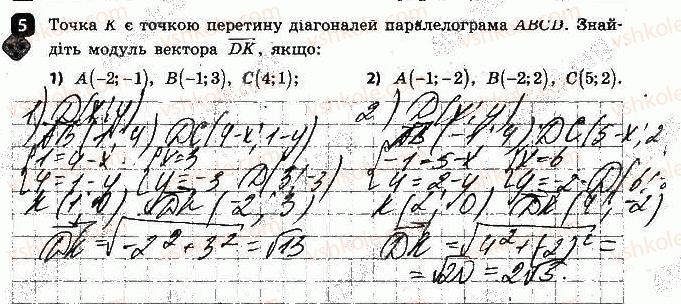 5 Точка K є точкою перетину діагоналей паралелограма ABCD. Знай-
діть модуль вектора DK, якщо:
1) A(-2;-1), B(-1;3), C(4;1);
2) A(-1;-2), B(-2;2), C(5;2).
1) D(x;y)
AB(1;4) DC(4-x;1-y)
{1=4-x {x=3
{4=1-y {y=-3 D(3;-3)
K(1;0) DK(-2;3)
DK=√-2²+3²=√13
2) D(x;y)
AB(-1;4) DC(5-x;2
{-1=5-x {x=6
{4=2-y {y=-2 D(6;
K(2;0) DK(4;-2)
DK=√4²+(-2)²=
=√20=2√5.